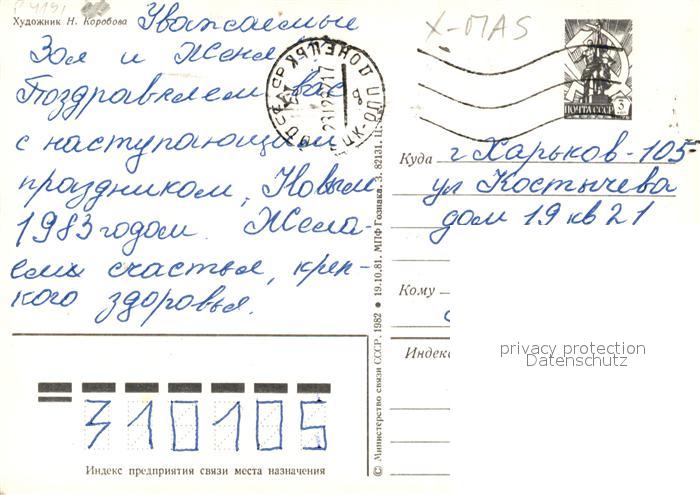 Художник Н. Коробова
Уважаемые
Зоя и Женя
Поздравляем вас
с наступающим
праздником, Новым
1983 годом. Жела-
ем счастья, креп-
кого здоровья.
X-MAS
ПОЧТА СССР
3
Куда г Харьков-105
ул Костычева
дом 19 кв 21
Кому
Индекс
privacy protection
Datenschutz
310105
Индекс предприятия связи места назначения
© Министерство связи СССР. 1982 ● 19.10.81. МПФ Гознака. З. 82131. Ц.